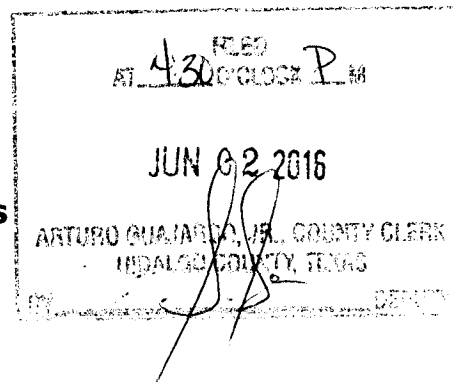 FILED
AT 4:30 O'CLOCK P M
JUN 02 2016
s
ARTURO GUAJARDO, JR., COUNTY CLERK
HIDALGO COUNTY, TEXAS
BY DEPUTY